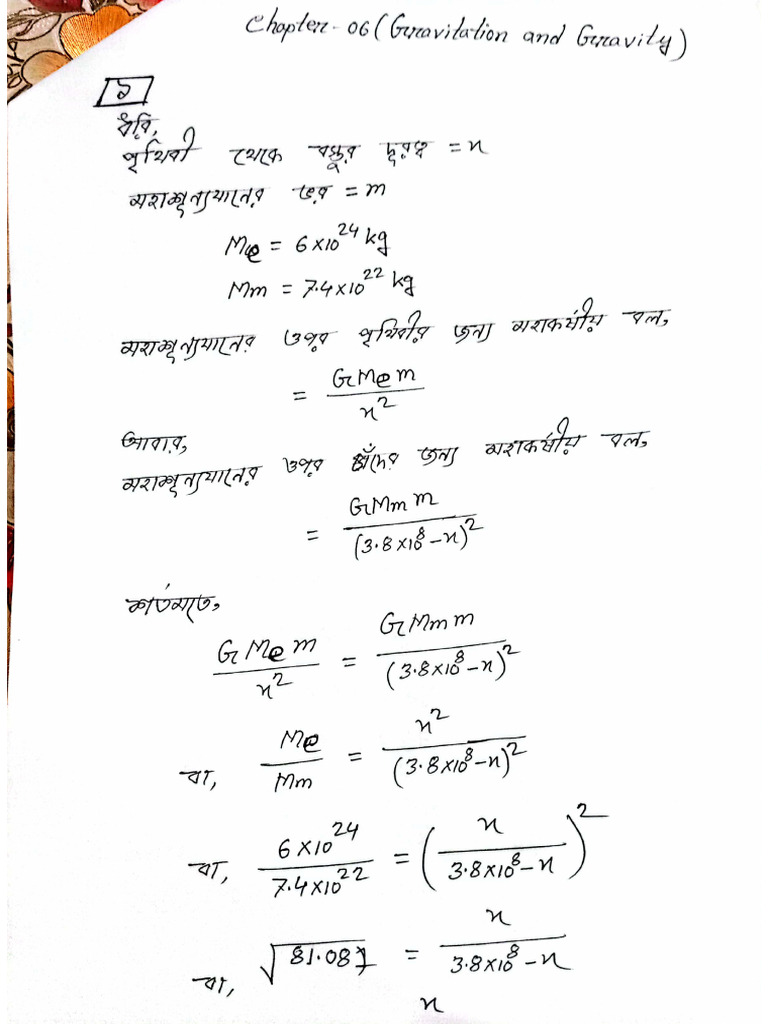 Chapter-06 (Gravitation and Gravity)
১
ধরি,
পৃথিবী থেকে বস্তুর দূরত্ব = x
মহাশূন্যযানের ভর = m
Me = 6×10^24 kg
Mm = 7.4×10^22 kg
মহাশূন্যযানের ওপর পৃথিবীর জন্য মহাকর্ষীয় বল,
= GMem / x^2
আবার,
মহাশূন্যযানের ওপর চাঁদের জন্য মহাকর্ষীয় বল,
= GMmm / (3.8×10^8-x)^2
শর্তমতে,
GMem / x^2 = GMmm / (3.8×10^8-x)^2
বা, Me / Mm = x^2 / (3.8×10^8-x)^2
বা, 6×10^24 / 7.4×10^22 = (x / 3.8×10^8-x)^2
বা, √81.081 = x / 3.8×10^8-x
x